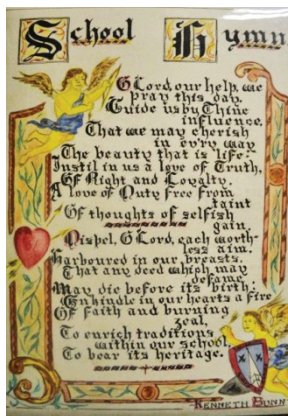 School Hymn
O Lord, our help, we
pray this day,
Guide us by Thine
influence,
That we may cherish
in ev'ry way
The beauty that is life:
Instil in us a love of Truth,
Of Right and Loyalty,
A love of Duty free from
taint
Of thoughts of selfish
gain.
Dispel, O Lord, each worth-
less aim,
Harboured in our breasts,
That any deed which may
defame
May die before its birth:
Enkindle in our hearts a fire
Of faith and burning
zeal,
To enrich traditions
within our school,
To bear its heritage.
KENNETH BUNN